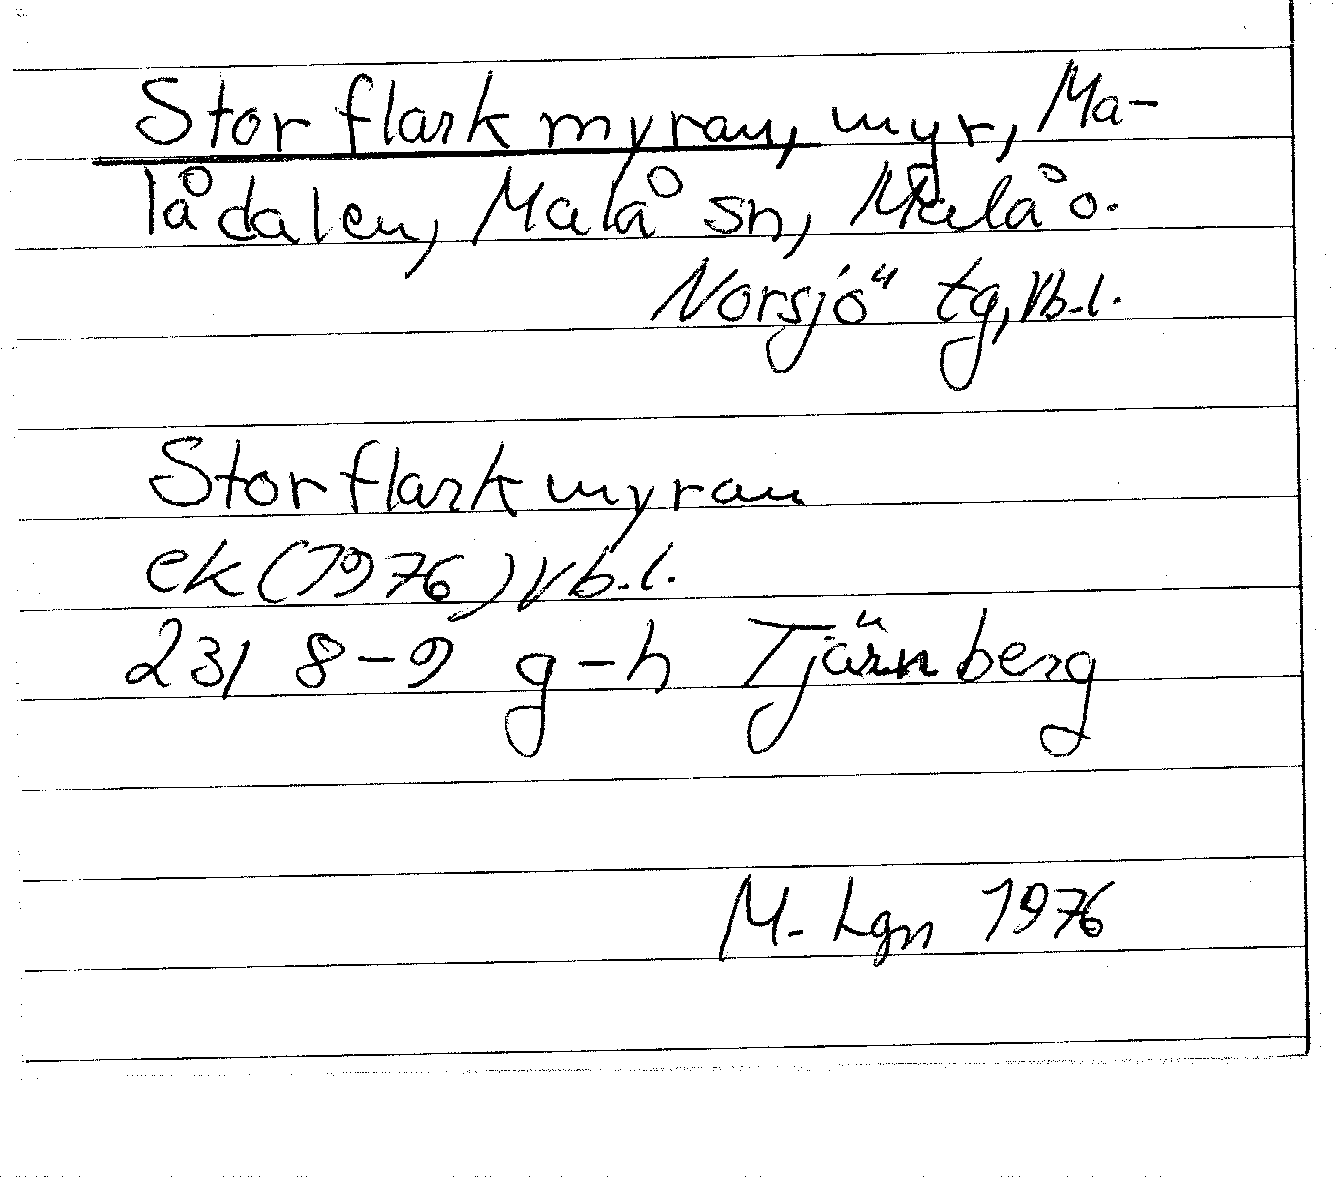 Storflarkmyran, myr, Ma-
lådalen, Malå sn, Malå o.
Norsjö tg, Vb.l.
Storflarkmyran
ek (1976) Vb.l.
23I 8-9 g-h Tjärnberg
M. Lgn 1976